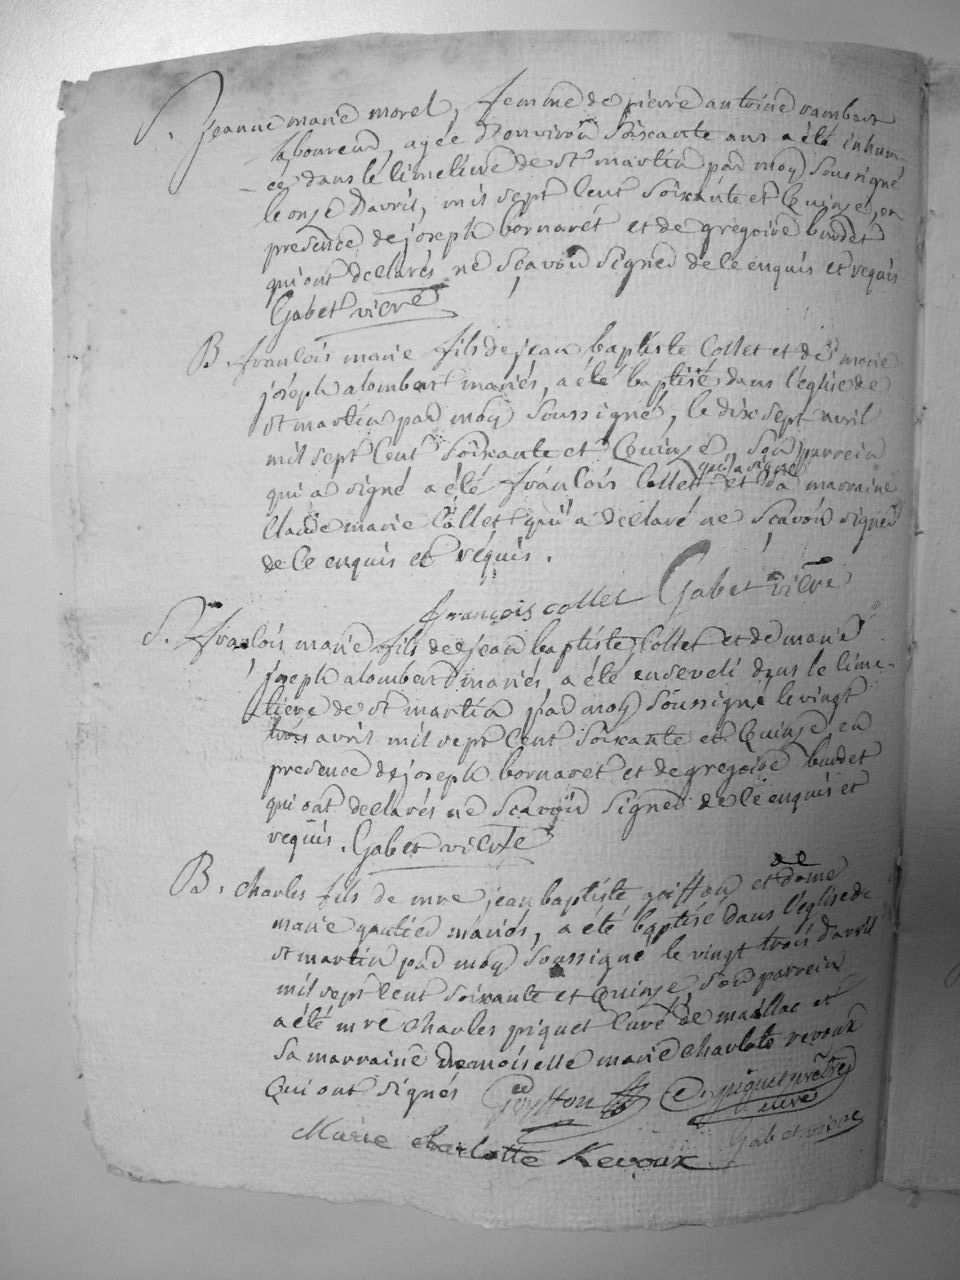 S. jeanne marie morel, femme de pierre antoine rambert
laboureur, agée d'environ soixante ans a été inhum-
ée dans le cimetiere de st martin par moy soussigné
le onze d'avril, mil sept cent soixante et quinze, en
presence de joseph bornaret et de gregoire burdet
qui ont declarés ne sçavoir signer de ce enquis et requis
Gabet vicre
B. françois marie fils de jean baptiste Collet et de marie
joseph alombert mariés, a été baptisé dans l'églue de
st martin par moy soussigné, le dix sept avril
mil sept cent soixante et quinze, son parrein
qui a signé a été françois Collet qui a signé et sa marraine
Claude marie Collet qui a declaré ne sçavoir signer
de ce enquis et requis.
françois collet Gabet vicre
S. françois marie fils de jean baptiste Collet et de marie
joseph alombert mariés a été enseveli dans le cime-
tiere de st martin par moy soussigné le vingt
trois avril mil sept cent soixante et quinze en
presence de joseph bornaret et de gregoire burdet
qui ont declarés ne sçavoir signer de ce enquis et
requis. Gabet vicre
B. charles fils de mre jean baptiste goiffon et de dame
marie gautier mariés, a été baptisé dans l'église de
st martin par moy soussigné le vingt trois d'avril
mil sept cent soixante et quinze, son parrein
a été mre charles piquet curé de maillac et
sa marraine demoiselle marie charlote revoux
qui ont signés Goyffon C. piquet prêtre
curé
Marie charlotte Revoux Gabet vicre